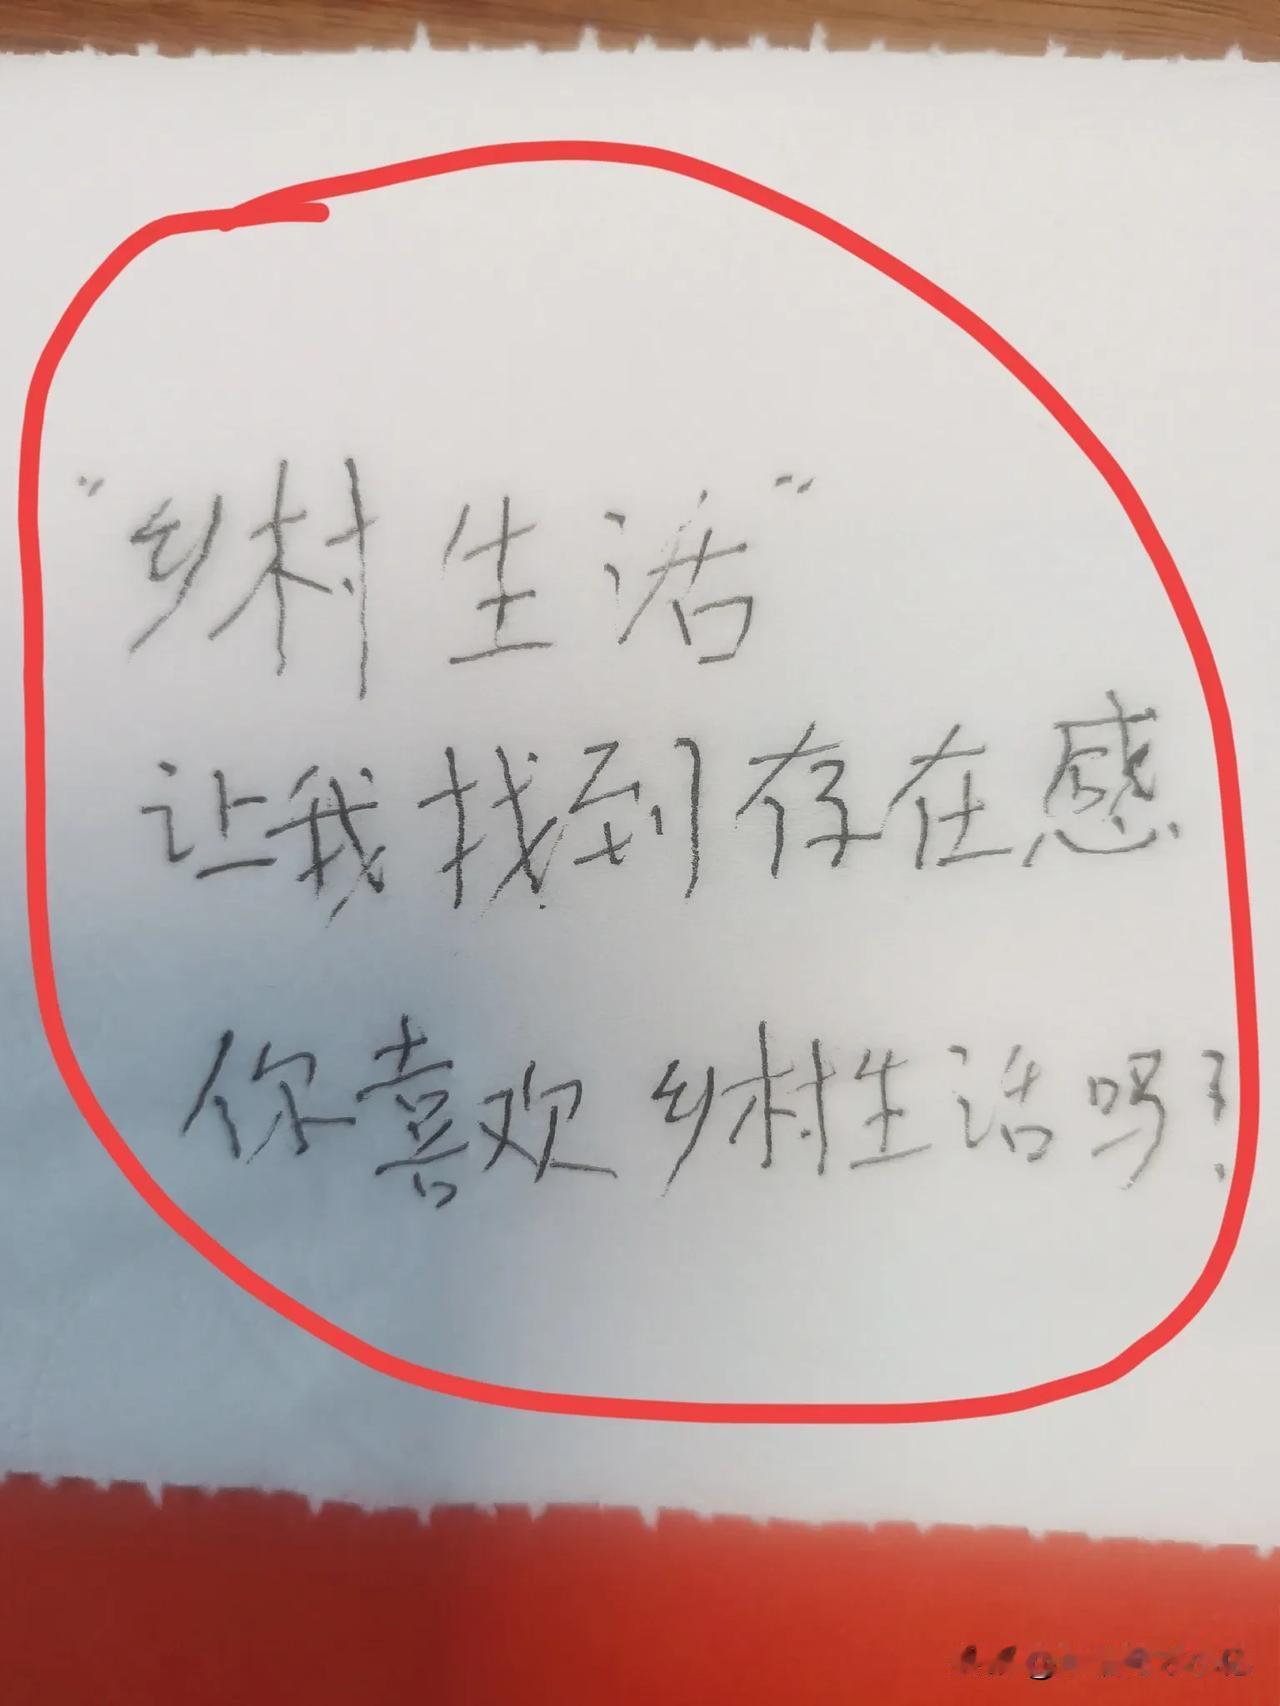 "乡村生活"
让我找到存在感
你喜欢乡村生活吗?